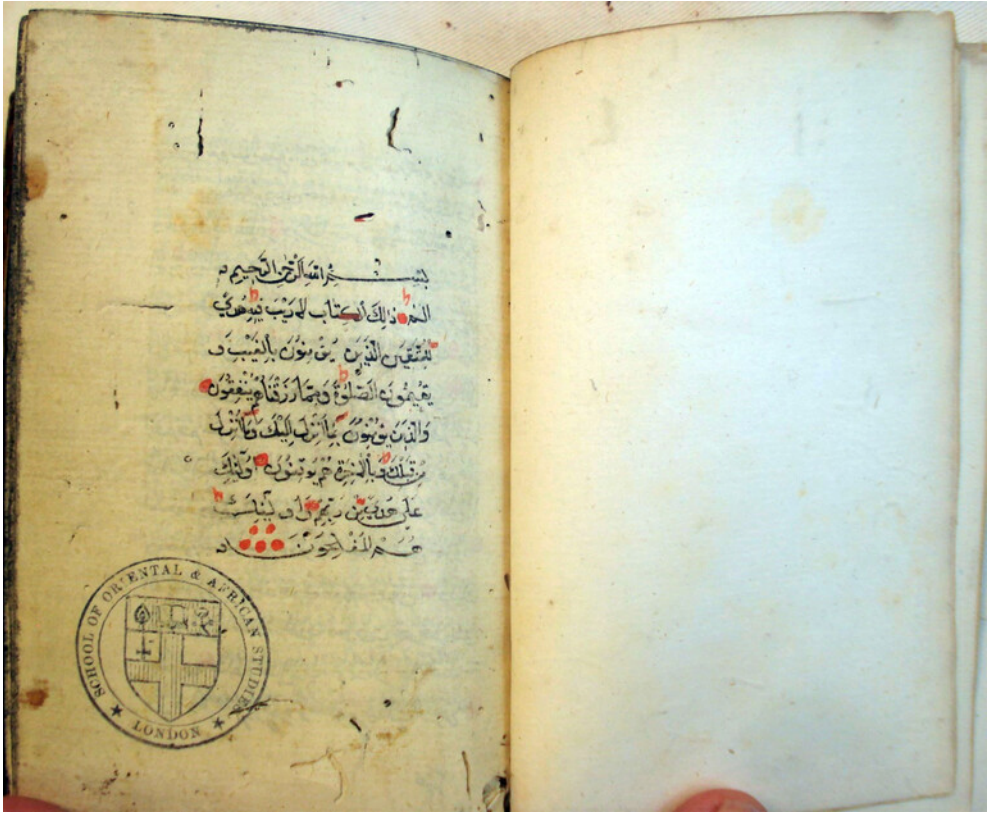 بِسْمِ اللهِ الرَّحْمٰنِ الرَّحِيمِ
الم ذٰلِكَ الْكِتَابُ لَا رَيْبَ فِيهِ هُدًى
لِلْمُتَّقِينَ الَّذِينَ يُؤْمِنُونَ بِالْغَيْبِ وَ
يُقِيمُونَ الصَّلٰوةَ وَمِمَّا رَزَقْنَاهُمْ يُنْفِقُونَ
وَالَّذِينَ يُؤْمِنُونَ بِمَا أُنْزِلَ إِلَيْكَ وَمَا أُنْزِلَ
مِنْ قَبْلِكَ وَبِالْآخِرَةِ هُمْ يُوقِنُونَ أُولٰئِكَ
عَلَى هُدًى مِنْ رَبِّهِمْ وَأُولٰئِكَ
هُمُ الْمُفْلِحُونَ
SCHOOL OF ORIENTAL & AFRICAN STUDIES
LONDON